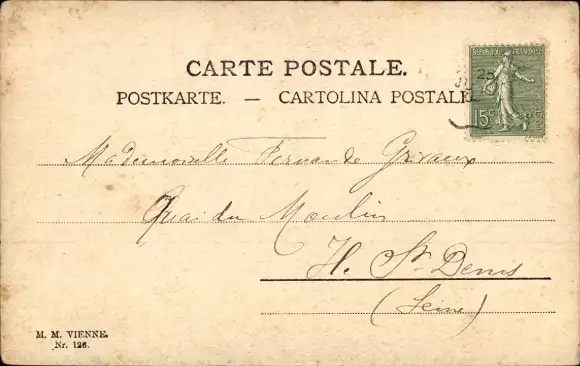 CARTE POSTALE.
POSTKARTE. — CARTOLINA POSTALE
REPUBLIQUE FRANÇAISE
25
15c
Mademoiselle Fernande Grivaux
Quai du Moulin
H. St Denis
(Seine)
M. M. VIENNE.
Nr. 126.